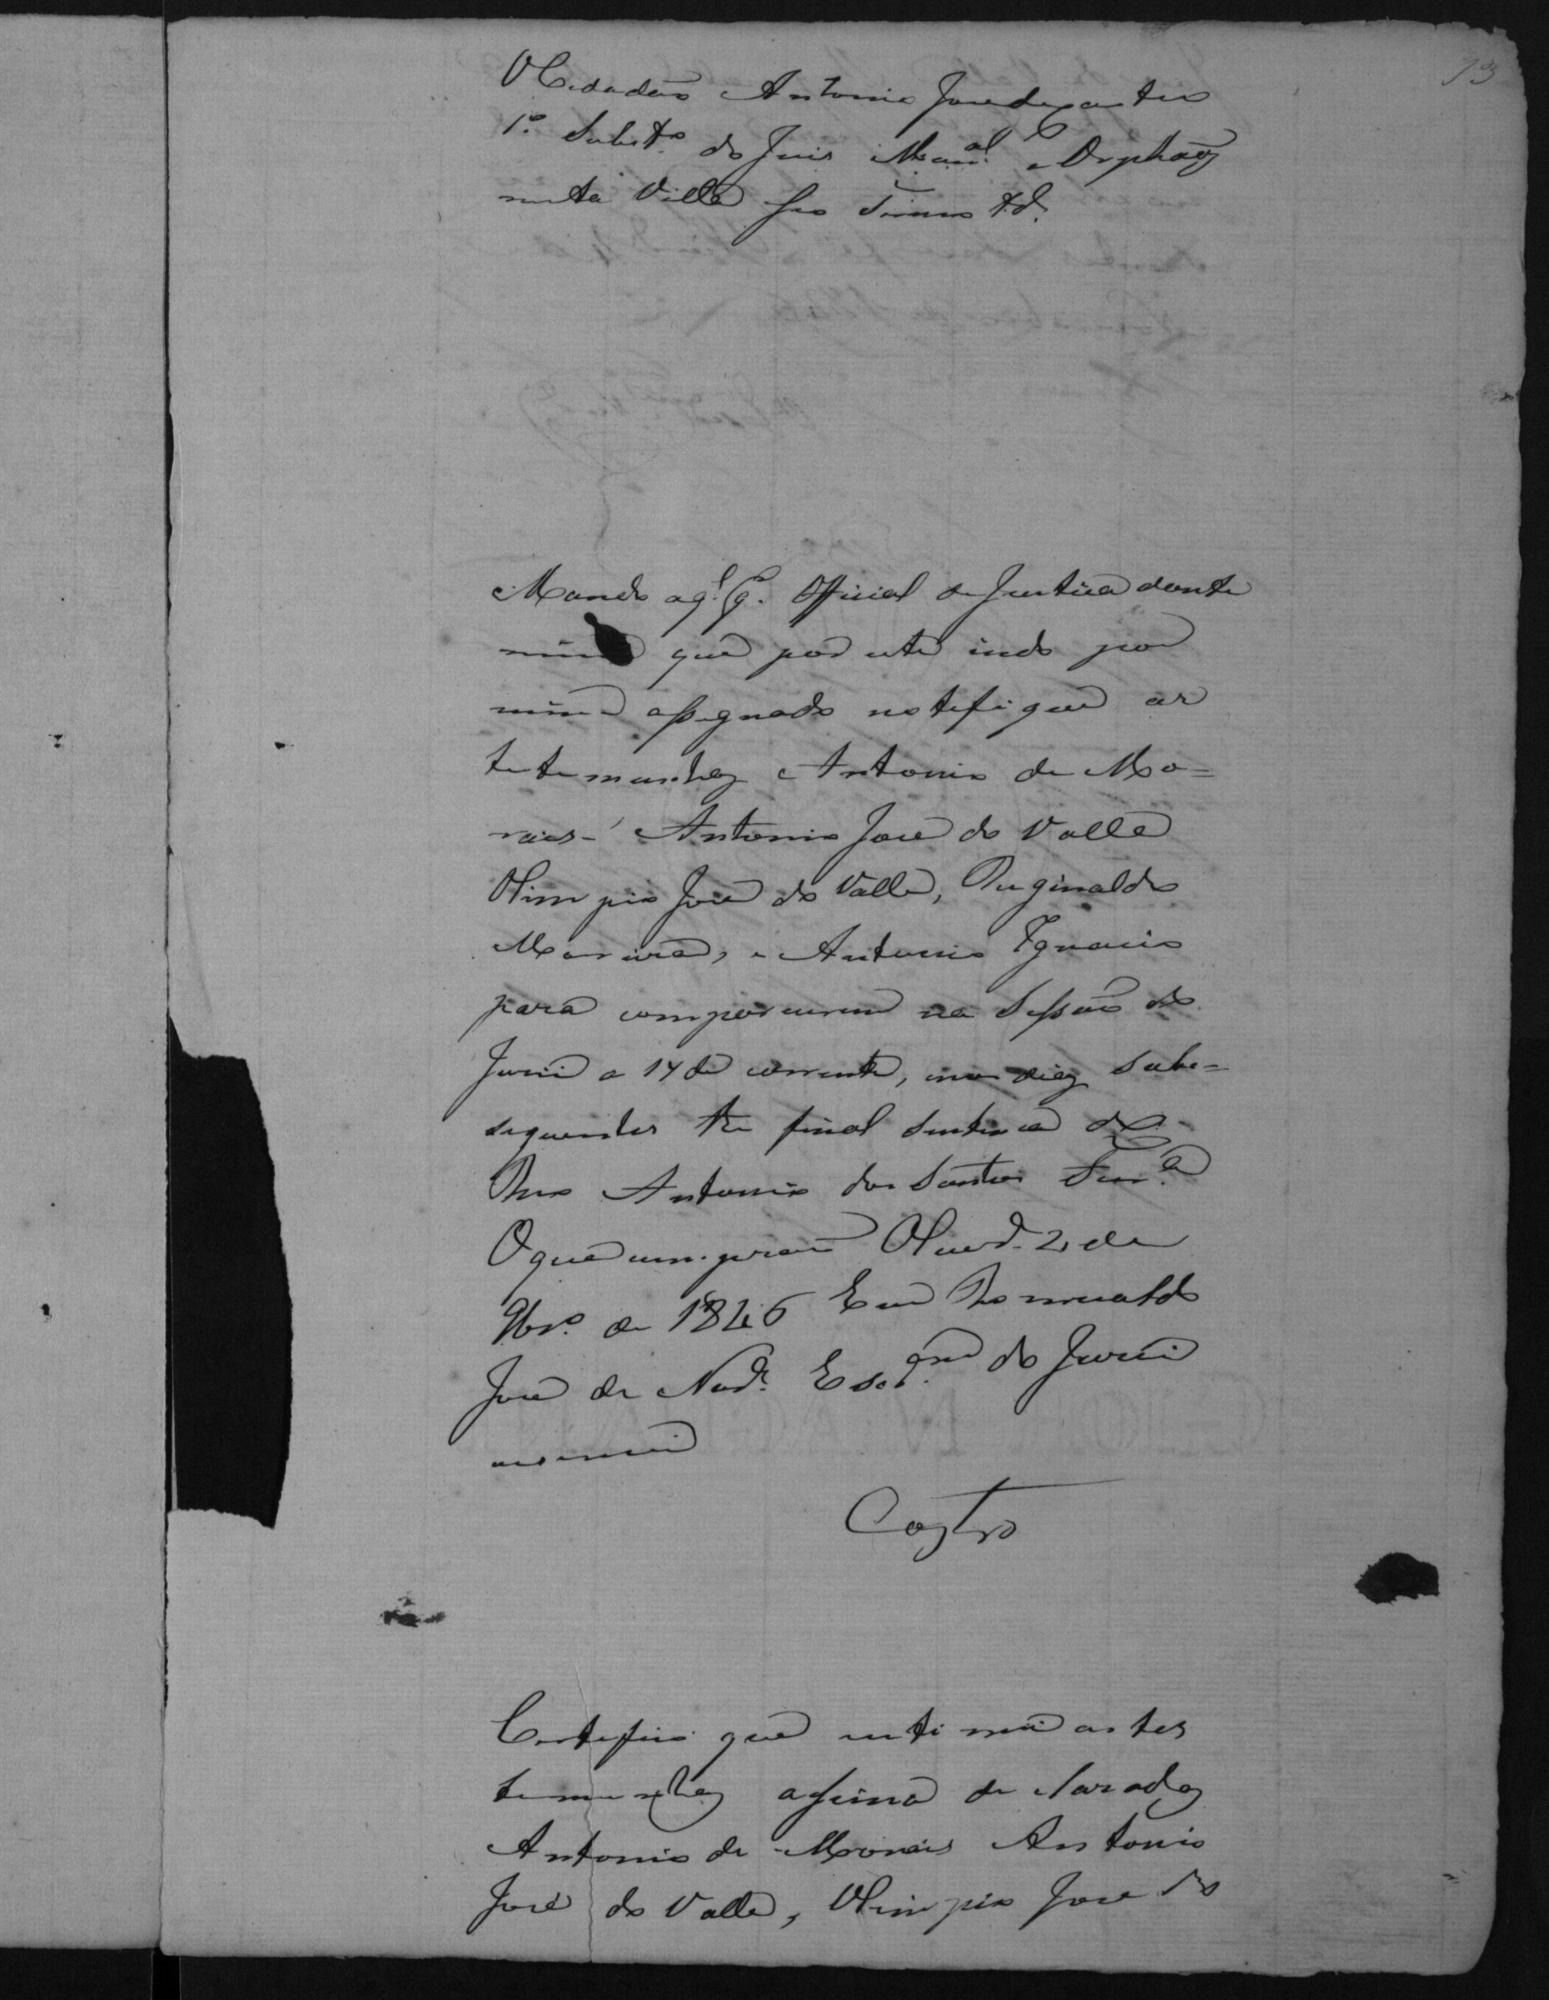 13
O Cidadão Antonio Jose de Castro
1.º Subst.º do Juis Mun.al e Orphaõs
nesta Villa seo Termo &.ª
Mando a q.l q.r Official de Justica dante
mim que por este indo por
mim assignado notefique as
testemunhas Antonio de Mo=
raes - Antonio José do Valle
Olimpio José do Valle, Reginaldo
Moreira, e Antonio Ignacio
para comparecerem na Sessão do
Jurii a 14 do corrente, e nos dias subse=
seguentes te final sentenca do
Reo Antonio dos Santos Ferr.ª
O que cumpram
9br.º de 1846 Eu Romualdo
José de And.e Escr.am do Jurii
escrevi
Castro
Certefico que intimei as tes
temunhas assima declaradas
Antonio de Moraes Antonio
José do Valle, Olimpio Jose do